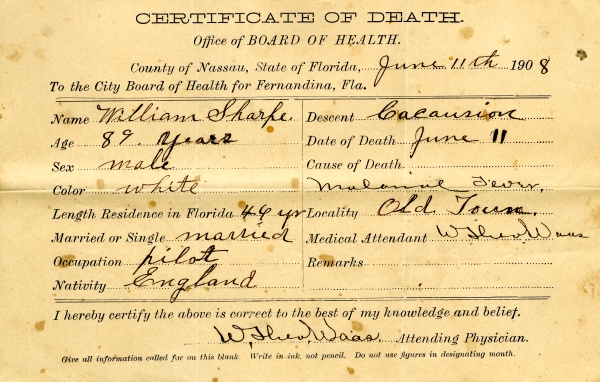 CERTIFICATE OF DEATH.
Office of BOARD OF HEALTH.
County of Nassau, State of Florida, June 11th 1908
To the City Board of Health for Fernandina, Fla.
Name William Sharpe. Descent Cacausion
Age 89 years Date of Death June 11
Sex male Cause of Death
Color white Malarial Fever.
Length Residence in Florida 46 yr Locality Old Town.
Married or Single married Medical Attendant W. Theo. Waas
Occupation pilot Remarks
Nativity England
I hereby certify the above is correct to the best of my knowledge and belief.
W. Theo. Waas. Attending Physician.
Give all information called for on this blank. Write in ink, not pencil. Do not use figures in designating month.